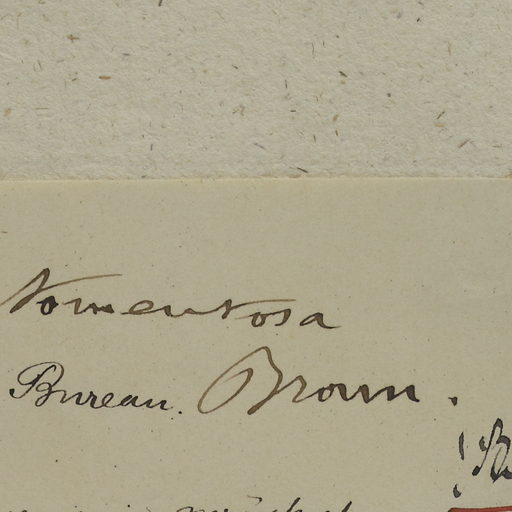 tomentosa
Bureau. Broun.